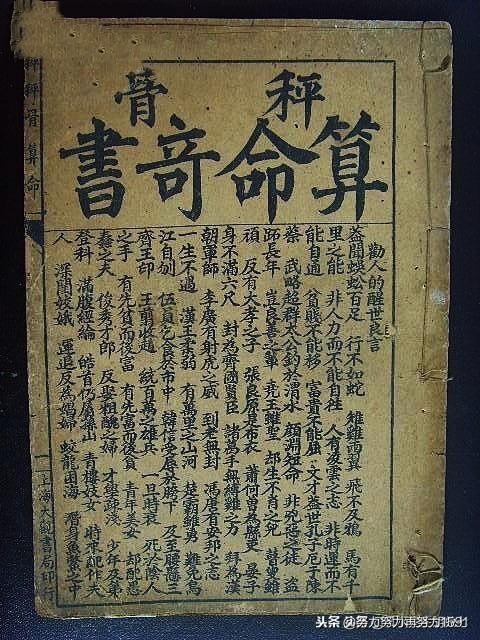 秤骨
算命竒書
勸人的醒世良言
盖聞蜈蚣百足 行不如蛇 雄雞両翼 飛不及鴉 馬有千
里之能 非人力而不能自往 人有凌雲之志 非時運而不
能自通 貧賤不能移 富貴不能屈 文才盖世孔子厄于陳
蔡 武略超群太公釣於渭水 顔淵短命 非兇惡之徒 盜
跖長年 豈良善之輩 堯王雖聖 却生不肖之兒 瞽叟雖
頑 反有大孝之子 張良原是布衣 蕭何曾為縣吏 晏子
身不滿六尺 封為齊國賢臣 諸葛手無縛雞之力 拜為漢
朝軍師 李廣有射虎之威 到老無封 馮唐有安邦之志
一生不遇 漢王柔弱 有萬里之山河 楚霸雖勇 難免烏
江自刎 伍員乞食於市中 韓信受辱於胯下 及至腰懸三
齊王印 王翦收趙 統百萬之雄兵 一旦時衰 死於陰人
之手 有先貧而後富 有先富而後貧 青年美女 却配愚
蠢之夫 俊秀才郎 反娶粗醜之婦 才學淺 少年及第
登科 滿腹經綸 皓首仍居深山 青樓妓女 時來配作夫
人 深閨姣娥 運退反為娼婦 蛟龍困海 潛身魚鱉之中
上海大觀書局印行
秤骨算命
头条 @努力努力再努力1591